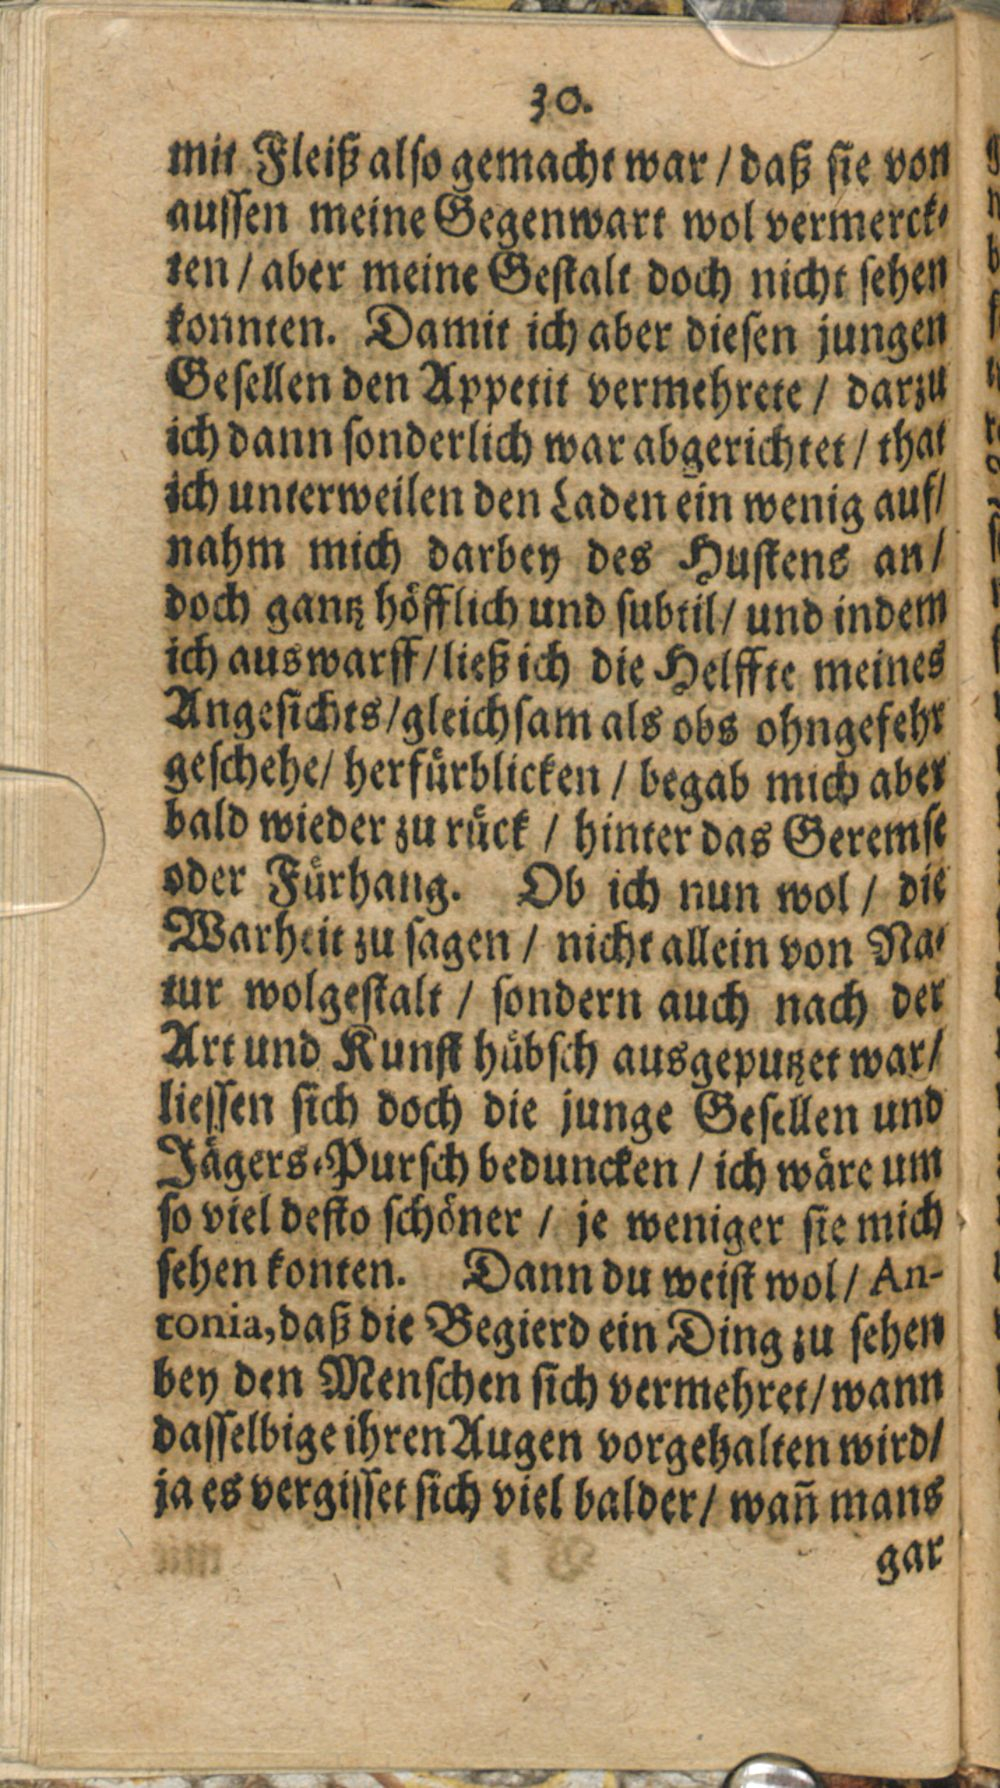 30.
mit Fleiß also gemacht war / daß sie von
aussen meine Gegenwart wol vermerck-
ten / aber meine Gestalt doch nicht sehen
konnten. Damit ich aber diesen jungen
Gesellen den Appetit vermehrete / darzu
ich dann sonderlich war abgerichtet / that
ich unterweilen den Laden ein wenig auf/
nahm mich darbey des Hustens an /
doch gantz höfflich und subtil / und indem
ich auswarff / ließ ich die Helffte meines
Angesichts / gleichsam als obs ohngefehr
geschehe / herfürblicken / begab mich aber
bald wieder zu rück / hinter das Geremse
oder Fürhang. Ob ich nun wol / die
Warheit zu sagen / nicht allein von Na-
tur wolgestalt / sondern auch nach der
Art und Kunst hübsch ausgeputzet war /
liessen sich doch die junge Gesellen und
Jägers-Pursch beduncken / ich wäre um
so viel desto schöner / je weniger sie mich
sehen konten. Dann du weist wol / An-
tonia, daß die Begierd ein Ding zu sehen
bey den Menschen sich vermehret / wann
dasselbige ihren Augen vorgehalten wird /
ja es vergisset sich viel balder / wañ mans
gar